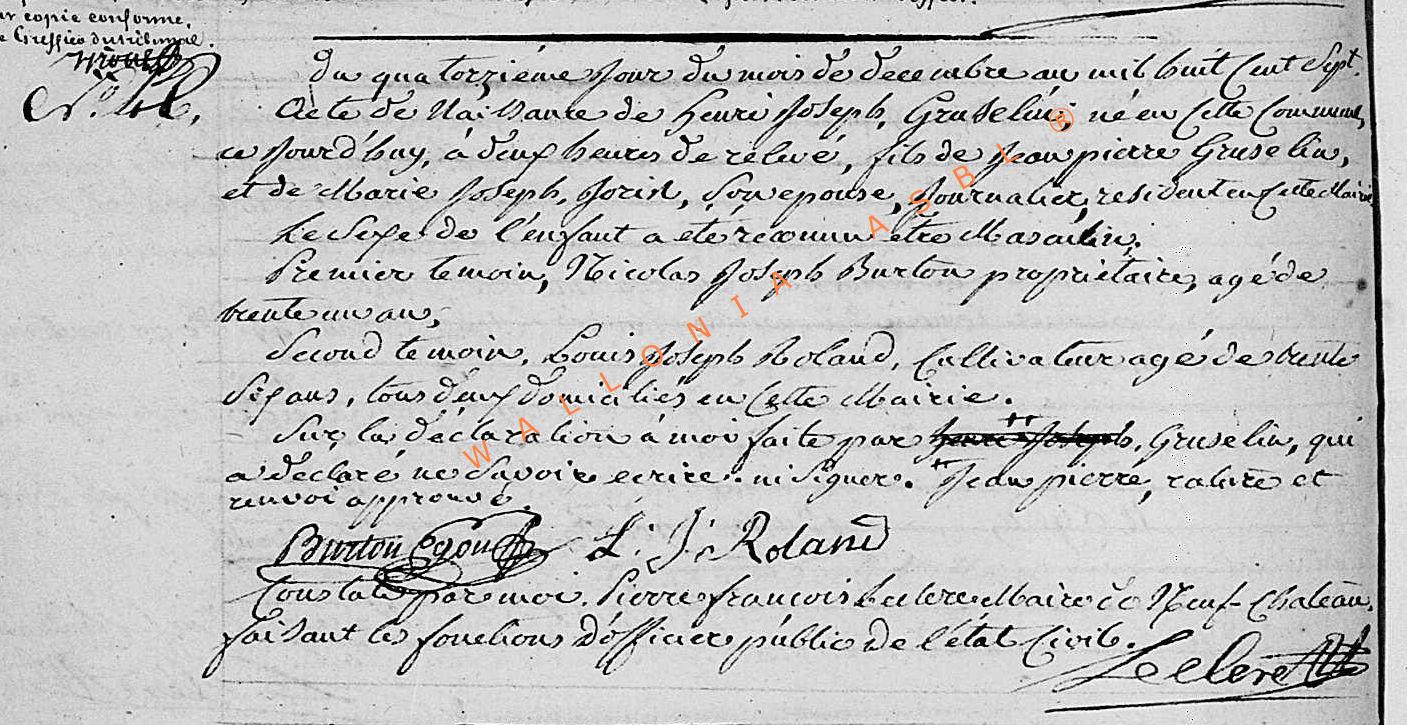 copie conforme,
Greffier du tribunal.
Du quatorzième Jour du mois de decembre an mil huit Cent Sept.
Acte de Naissance de henri Joseph, Gruselin, né en Cette Commune,
ce Jourd'huy, à deux heures de relevé, fils de Jean pierre Gruselin,
et de Marie Joseph, Joris, Son epouse, Journalier, resident en Cette Mairie
Le Sexe de l'enfant a été reconnu être Masculin.
Premier temoin, Nicolas Joseph Burton propriétaire, agé de
trente un an,
Second temoin, Louis Joseph Roland, Cultivateur agé de trente
Six ans, tous deux domiciliés en Cette Mairie.
Sur la déclaration à moi faite par henri Joseph, Gruselin, qui
a déclaré ne Savoir ecrire ni Signer. Jean pierre, rature et
renvoi approuvé.
Burton L. J. Roland
Constaté par moi. Pierre françois Leclere Maire de Neuf-Chateau,
faisant les fonctions d'officier public de l'état Civil.
Leclere
WALLONIA ASBL ®